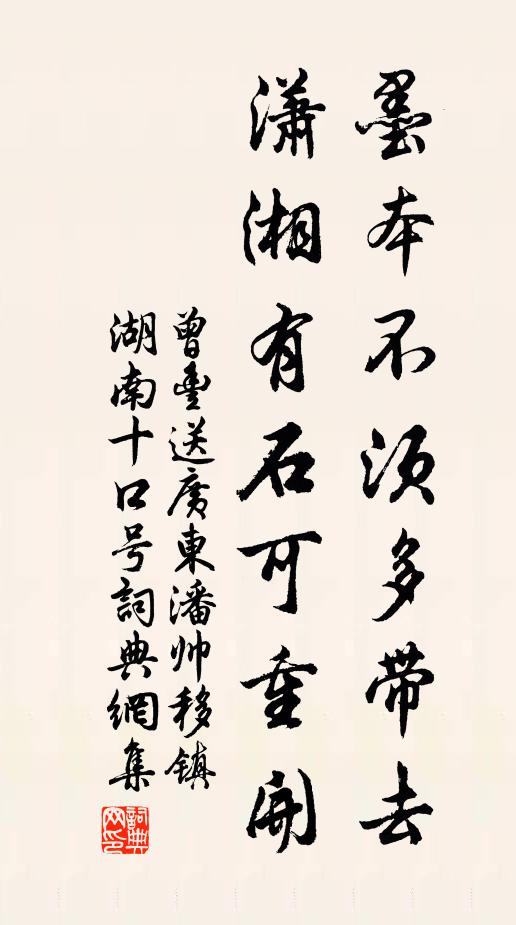 墨本不须多带去
潇湘有石可重开
曾丰送广东潘帅移镇
湖南十口号词典网集
词典网印